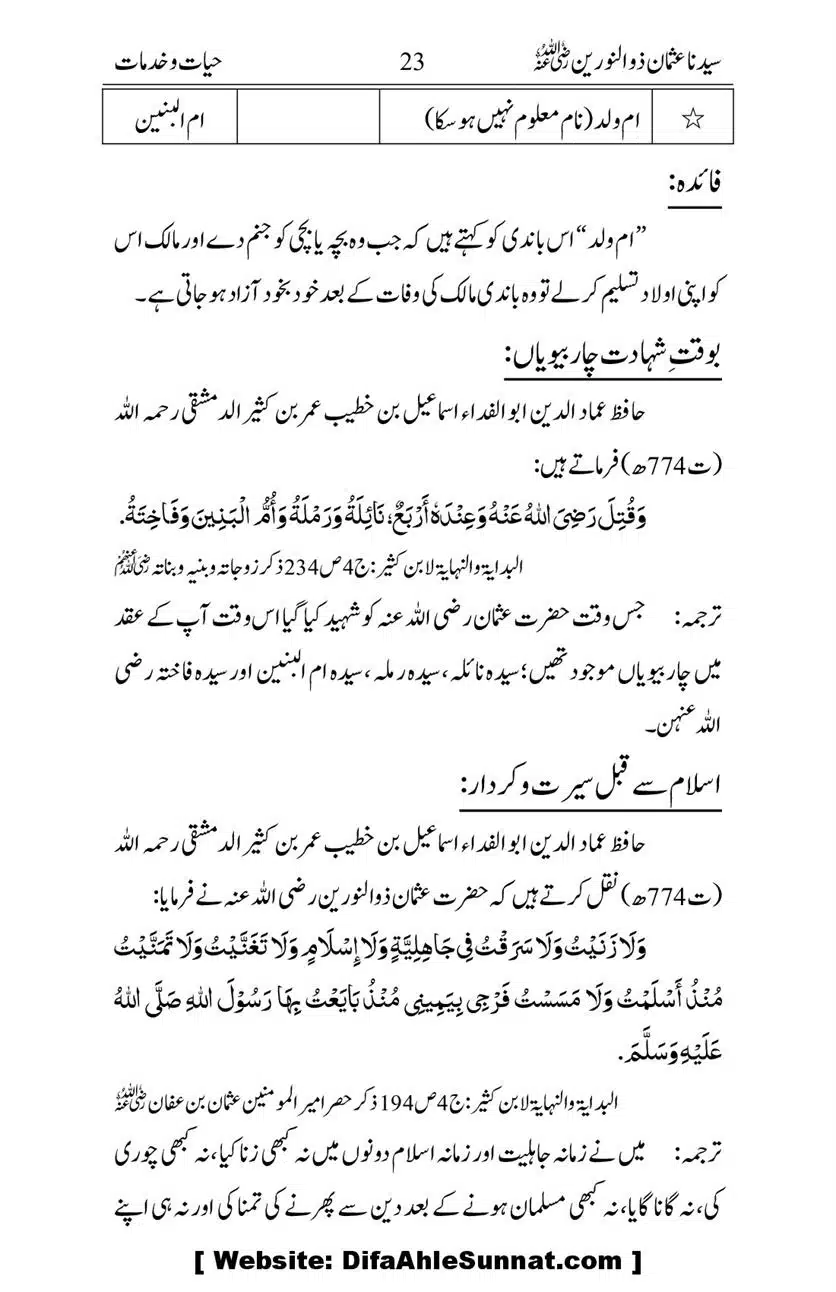 سیدنا عثمان ذوالنورین رضی اللہ عنہ 23 حیات و خدمات
☆ ام ولد (نام معلوم نہیں ہو سکا) ام البنین
فائدہ:
”ام ولد“ اس باندی کو کہتے ہیں کہ جب وہ بچہ یا بچی کو جنم دے اور مالک اس
کو اپنی اولاد تسلیم کر لے تو وہ باندی مالک کی وفات کے بعد خود بخود آزاد ہو جاتی ہے۔
بوقتِ شہادت چار بیویاں:
حافظ عماد الدین ابو الفداء اسماعیل بن خطیب عمر بن کثیر الدمشقی رحمہ اللہ
(ت774ھ) فرماتے ہیں:
وَقُتِلَ رَضِیَ اللہُ عَنْهُ وَعِنْدَهٗ أَرْبَعٌ، نَائِلَةُ وَرَمْلَةُ وَأُمُّ الْبَنِينَ وَفَاخِتَةُ.
البدایۃ والنہایۃ لابن کثیر: ج4 ص234 ذکر زوجاتہ وبنیہ وبناتہ رضی اللہ عنہم
ترجمہ: جس وقت حضرت عثمان رضی اللہ عنہ کو شہید کیا گیا اس وقت آپ کے عقد
میں چار بیویاں موجود تھیں؛ سیدہ نائلہ، سیدہ رملہ، سیدہ ام البنین اور سیدہ فاختہ رضی
اللہ عنہن۔
اسلام سے قبل سیرت و کردار:
حافظ عماد الدین ابو الفداء اسماعیل بن خطیب عمر بن کثیر الدمشقی رحمہ اللہ
(ت774ھ) نقل کرتے ہیں کہ حضرت عثمان ذوالنورین رضی اللہ عنہ نے فرمایا:
وَلَا زَنَيْتُ وَلَا سَرَقْتُ فِي جَاهِلِيَّةٍ وَلَا إِسْلَامٍ وَلَا تَغَنَّيْتُ وَلَا تَمَنَّيْتُ
مُنْذُ أَسْلَمْتُ وَلَا مَسَسْتُ فَرْجِي بِيَمِينِي مُنْذُ بَايَعْتُ بِهَا رَسُوْلَ اللهِ صَلَّى اللهُ
عَلَيْهِ وَسَلَّمَ.
البدایۃ والنہایۃ لابن کثیر: ج4 ص194 ذکر حصر امیر المومنین عثمان بن عفان رضی اللہ عنہ
ترجمہ: میں نے زمانہ جاہلیت اور زمانہ اسلام دونوں میں نہ کبھی زنا کیا، نہ کبھی چوری
کی، نہ گانا گایا، نہ کبھی مسلمان ہونے کے بعد دین سے پھرنے کی تمنا کی اور نہ ہی اپنے
[ Website: DifaAhleSunnat.com ]